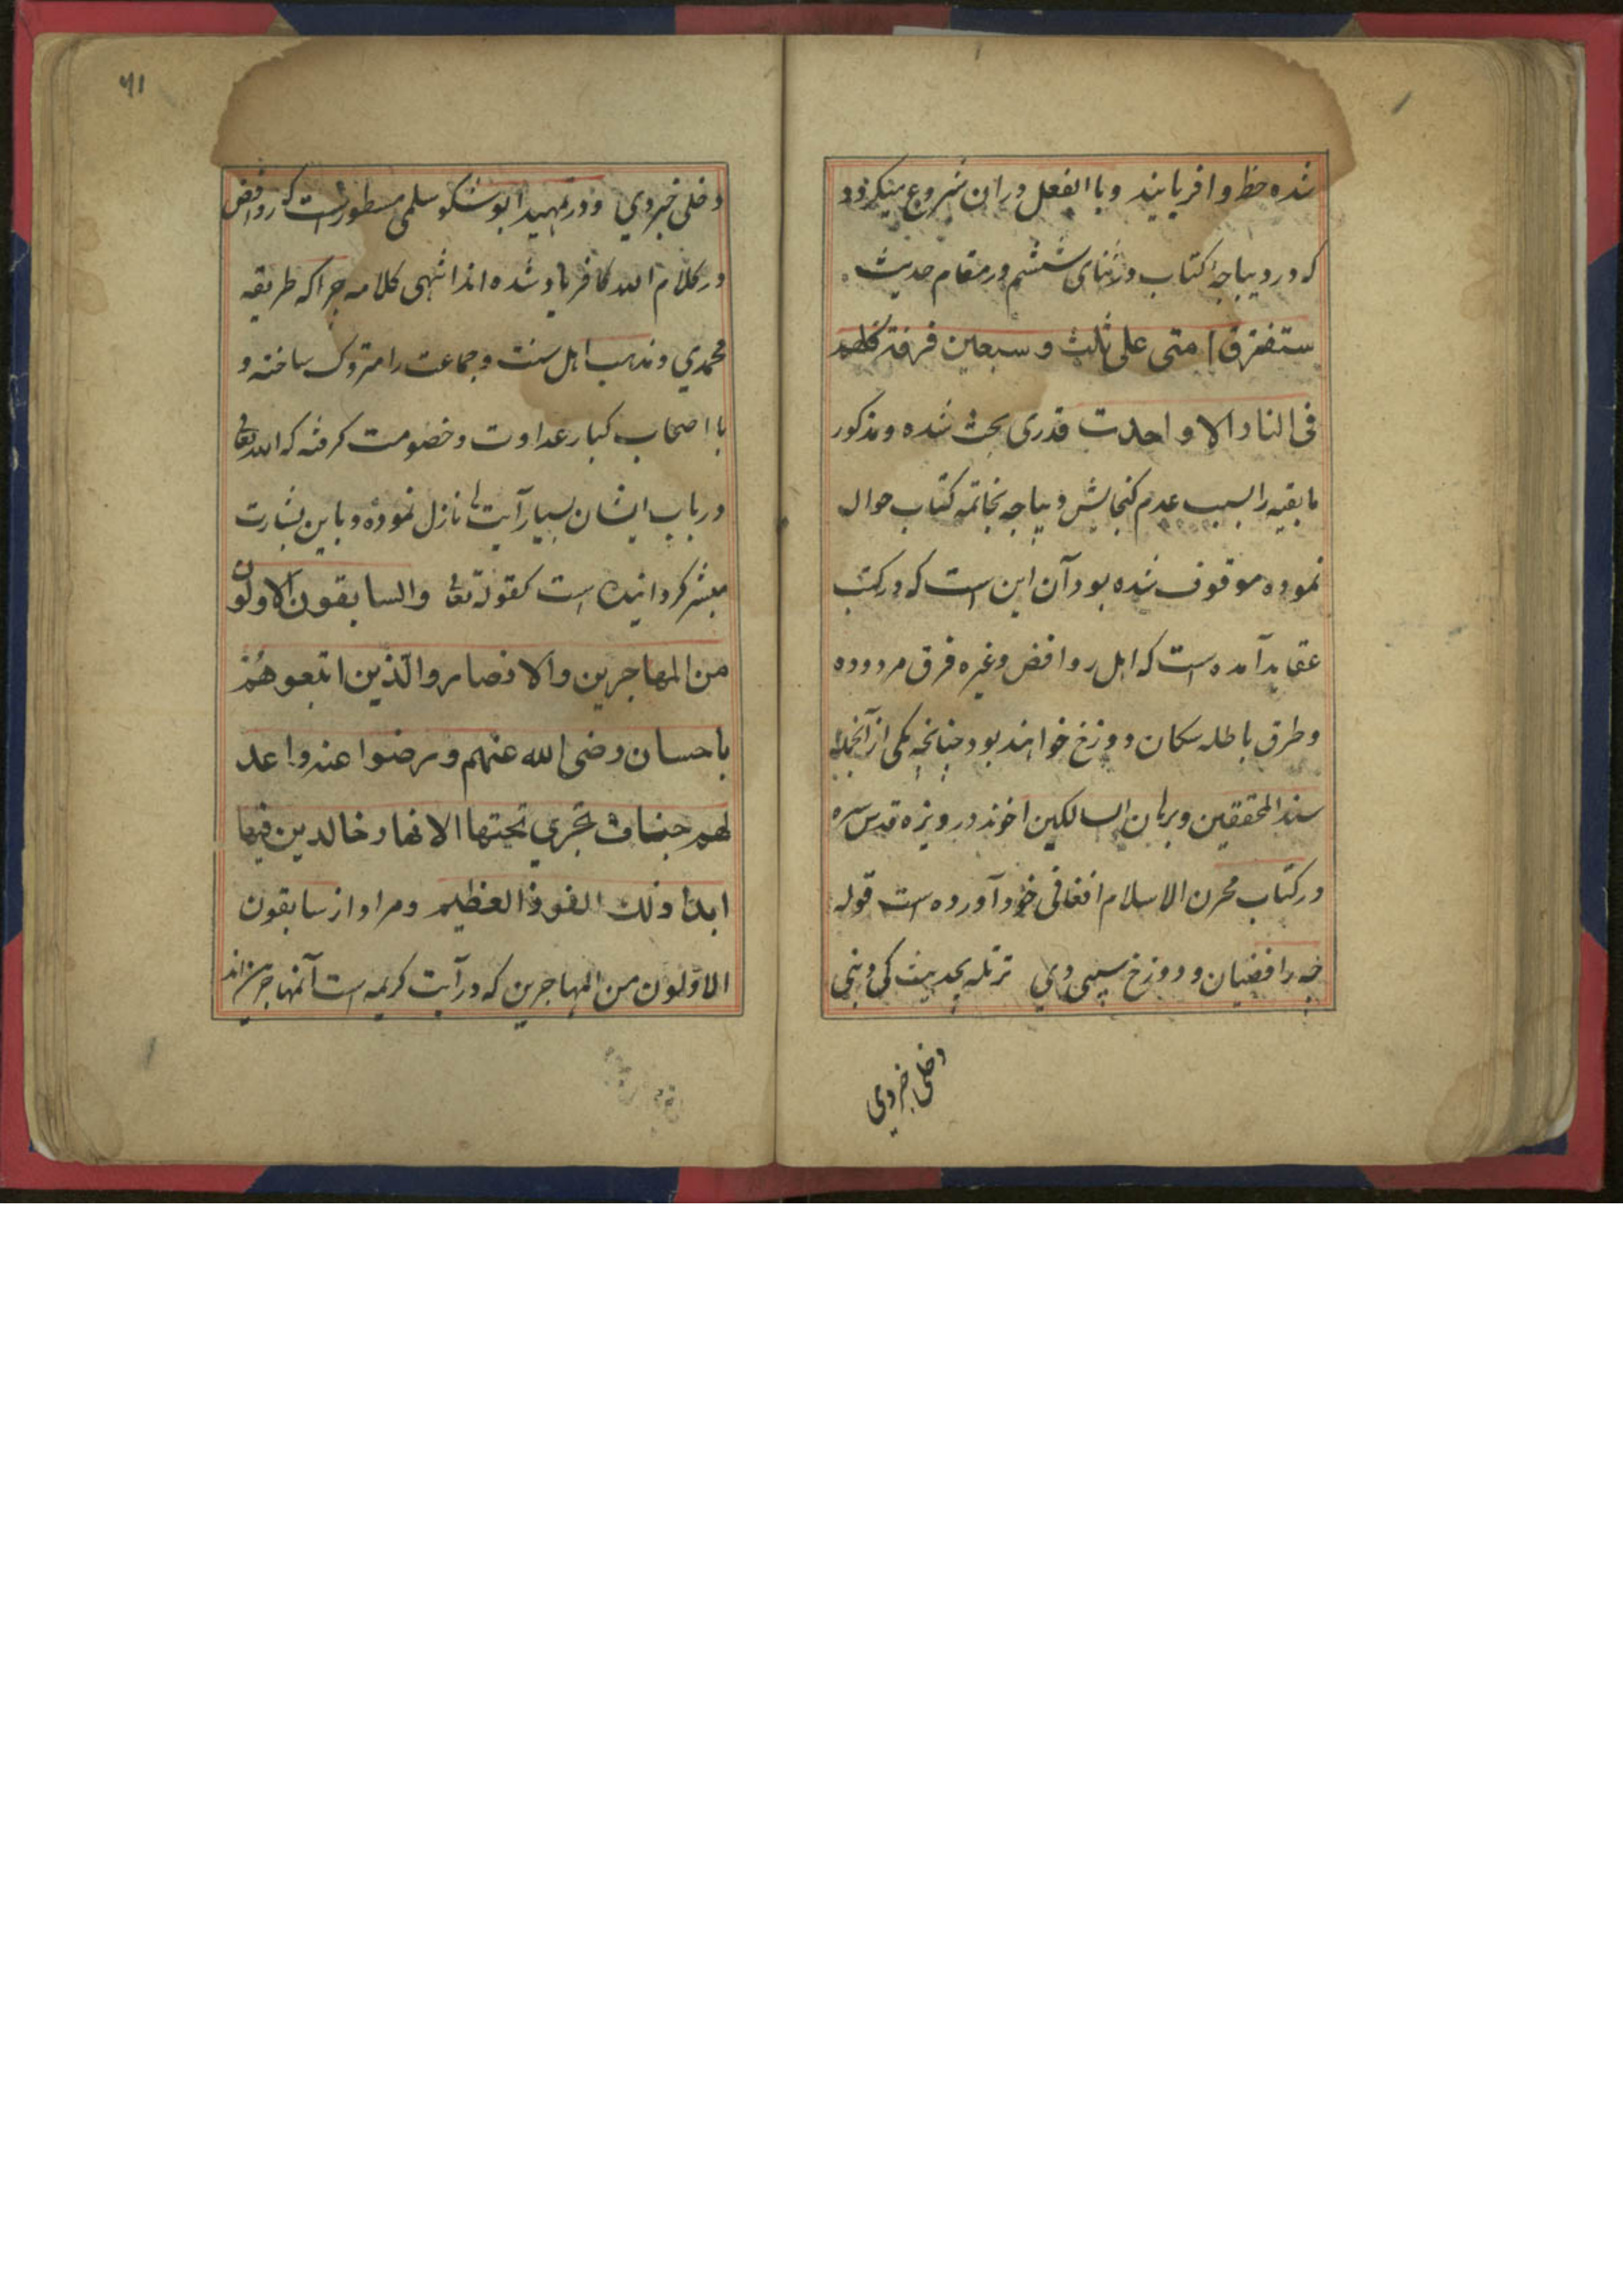 شده حظ وافر یابند و با الفعل در ان شروع میکردد
که در دیباجهٔ کتاب در اثنای ششم در مقام حدیث
ستفترق امتی علی ثلث و سبعین فرقة کلهم
فی النار الا واحدت قدری بحث شده و مذکور
مابقیه را بسبب عدم کنجایش دیباجه بخاتمه کتاب حواله
نموده موقوف شده بود آن این است که در کتب
عقاید آمده است که اهل روافض و غیره فرق مردوده
و طرق باطله سکان دوزخ خواهند بود چنانچه یکی از آنجمله
سند المحققین و برهان السالکین اخوند درویزه قدس سره
در کتاب مخزن الاسلام افغانی خود آورده است قوله
چه رافضیان د دوزخ سپی دي ترتله بحدیث کی د نبی
دخلی خبر دي
۶۱
دخلی خبر دي و در تمهید ابو شکور سلمی مسطور است که روافض
در کلام الله کافر یاد شده اند انتهی کلامه چرا که طریقه
محمدي و مذهب اهل سنت و جماعت را متروک ساخته و
با اصحاب کبار عداوت و خصومت کرفته که الله تعالی
در باب ایشان بسیار آیتها نازل نموده و باین بشارت
مبشر کردانیده است کقوله تعالی والسابقون الاولون
من المهاجرین والانصار والذین اتبعوهم
باحسان رضی الله عنهم ورضوا عنه واعد
لهم جنات تجري تحتها الانهار خالدین فیها
ابدا ذلك الفوز العظیم ومراد از سابقون
الاولون من المهاجرین که در آیت کریمه است آنمهاجرین اند